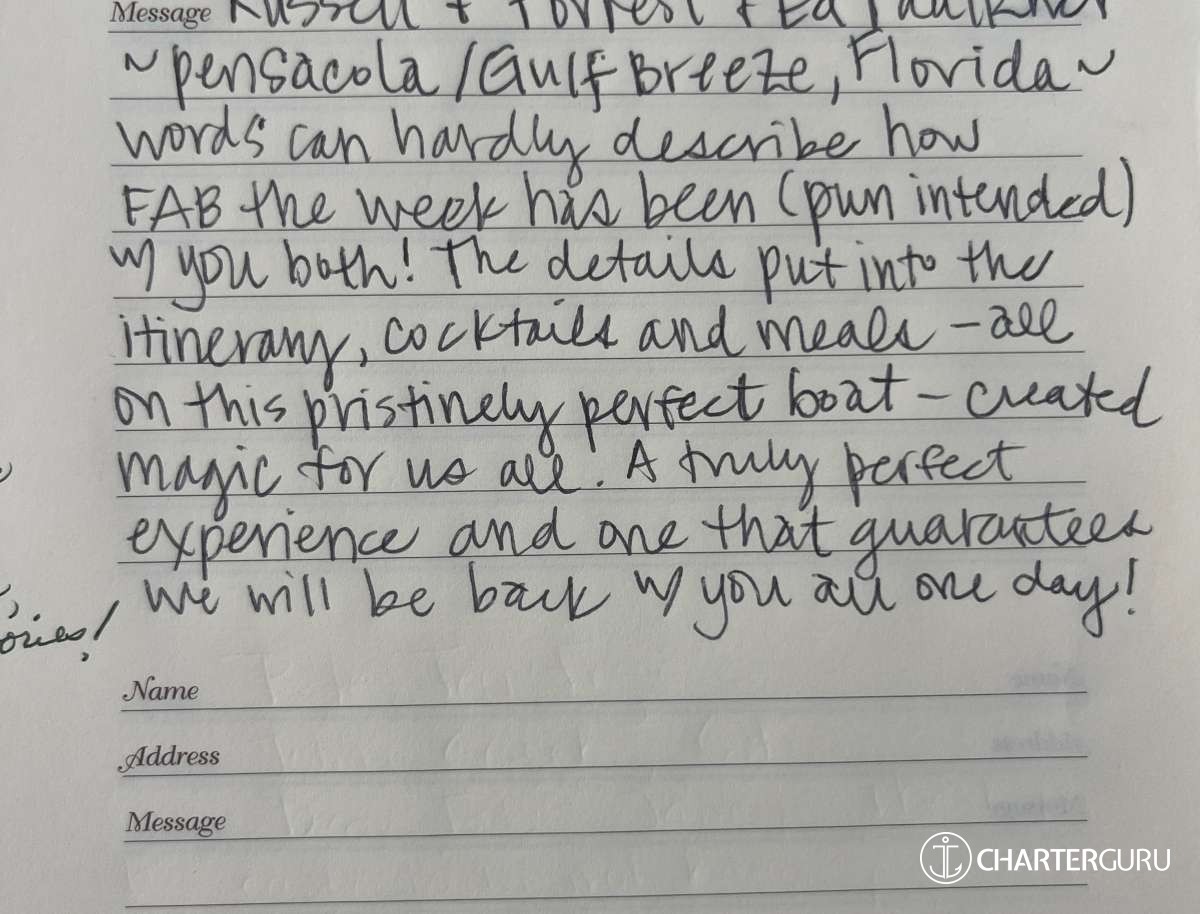 Message Russell + Forrest + Ed Faulkner
~ pensacola / Gulf Breeze, Florida ~
words can hardly describe how
FAB the week has been (pun intended)
w/ you both! The details put into the
itinerary, cocktails and meals - all
on this pristinely perfect boat - created
magic for us all. A truly perfect
experience and one that guarantees
we will be back w/ you all one day!
ories!
Name
Address
Message
CHARTERGURU